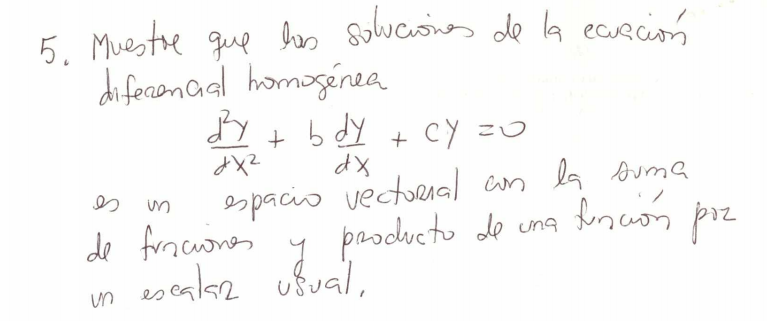 5. Muestre que las soluciones de la ecuación
diferencial homogénea
d²y/dx² + b dy/dx + cy = 0
es un espacio vectorial con la suma
de funciones y producto de una función por
un escalar usual.